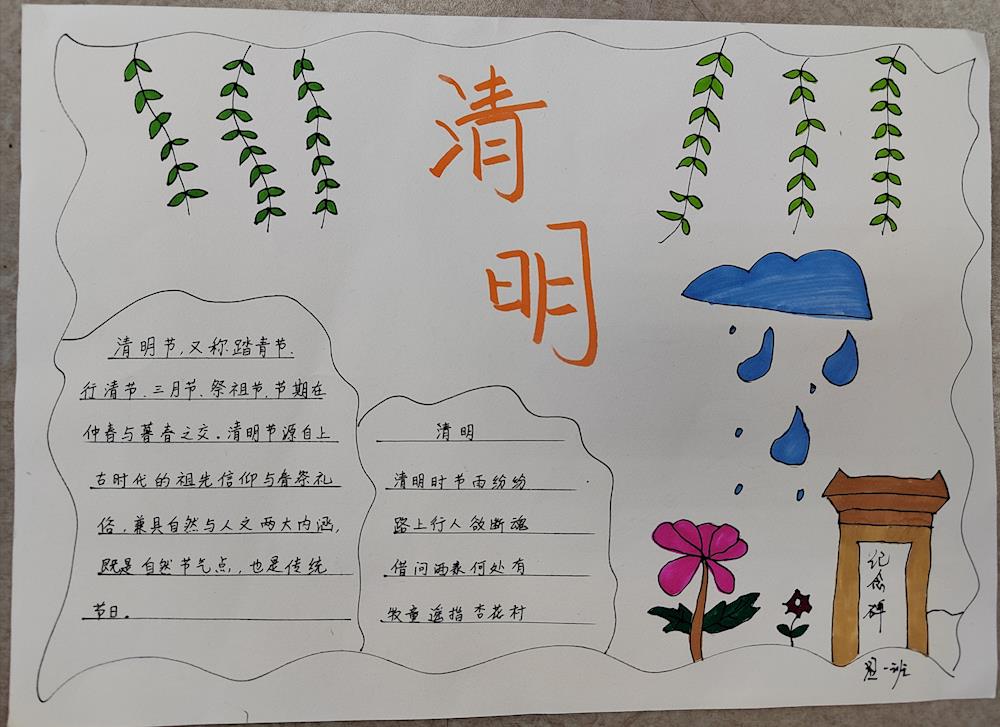 清
明
清明节,又称踏青节、
行清节、三月节、祭祖节,节期在
仲春与暮春之交。清明节源自上
古时代的祖先信仰与春祭礼
俗,兼具自然与人文两大内涵,
既是自然节气点,也是传统
节日。
清明
清明时节雨纷纷
路上行人欲断魂
借问酒家何处有
牧童遥指杏花村
纪念碑
一班